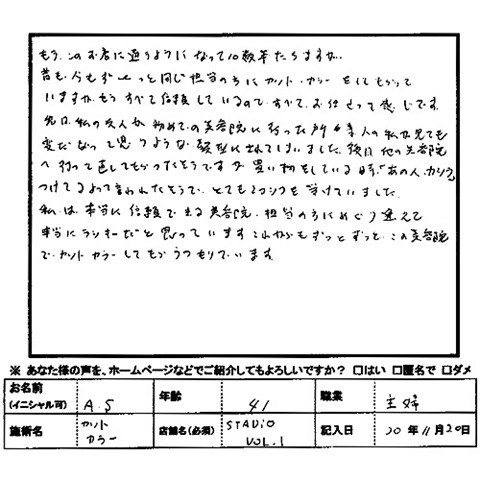 もう、このお店に通うようになって10数年たちますが、
昔も、今もずーっと同じ担当の方にカット・カラーをしてもらって
いますが、もうすべて信頼しているので、すべて、お任せって感じです。
先日、私の友人が初めての美容院に行った所、素人の私が見ても
変だなって思うような髪型にされてしまいました。後日他の美容院
へ行って直してもらったそうですが買い物をしている時「あの人、カツラ
つけてるよって言われたそうで、とてもショックを受けていました。
私は、本当に信頼で出る美容院、担当の方にめぐり逢えて
本当にラッキーだと思っています。これからもずっとずっと、この美容院
で、カットカラーしてもらうつもりでいます。
※ あなた様の声を、ホームページなどでご紹介してもよろしいですか？ □はい □匿名で □ダメ
お名前 (イニシャル可) A.S 年齢 41 職業 主婦
施術名 カット カラー 店舗名(必須) STADiO VOL.1 記入日 20年11月20日